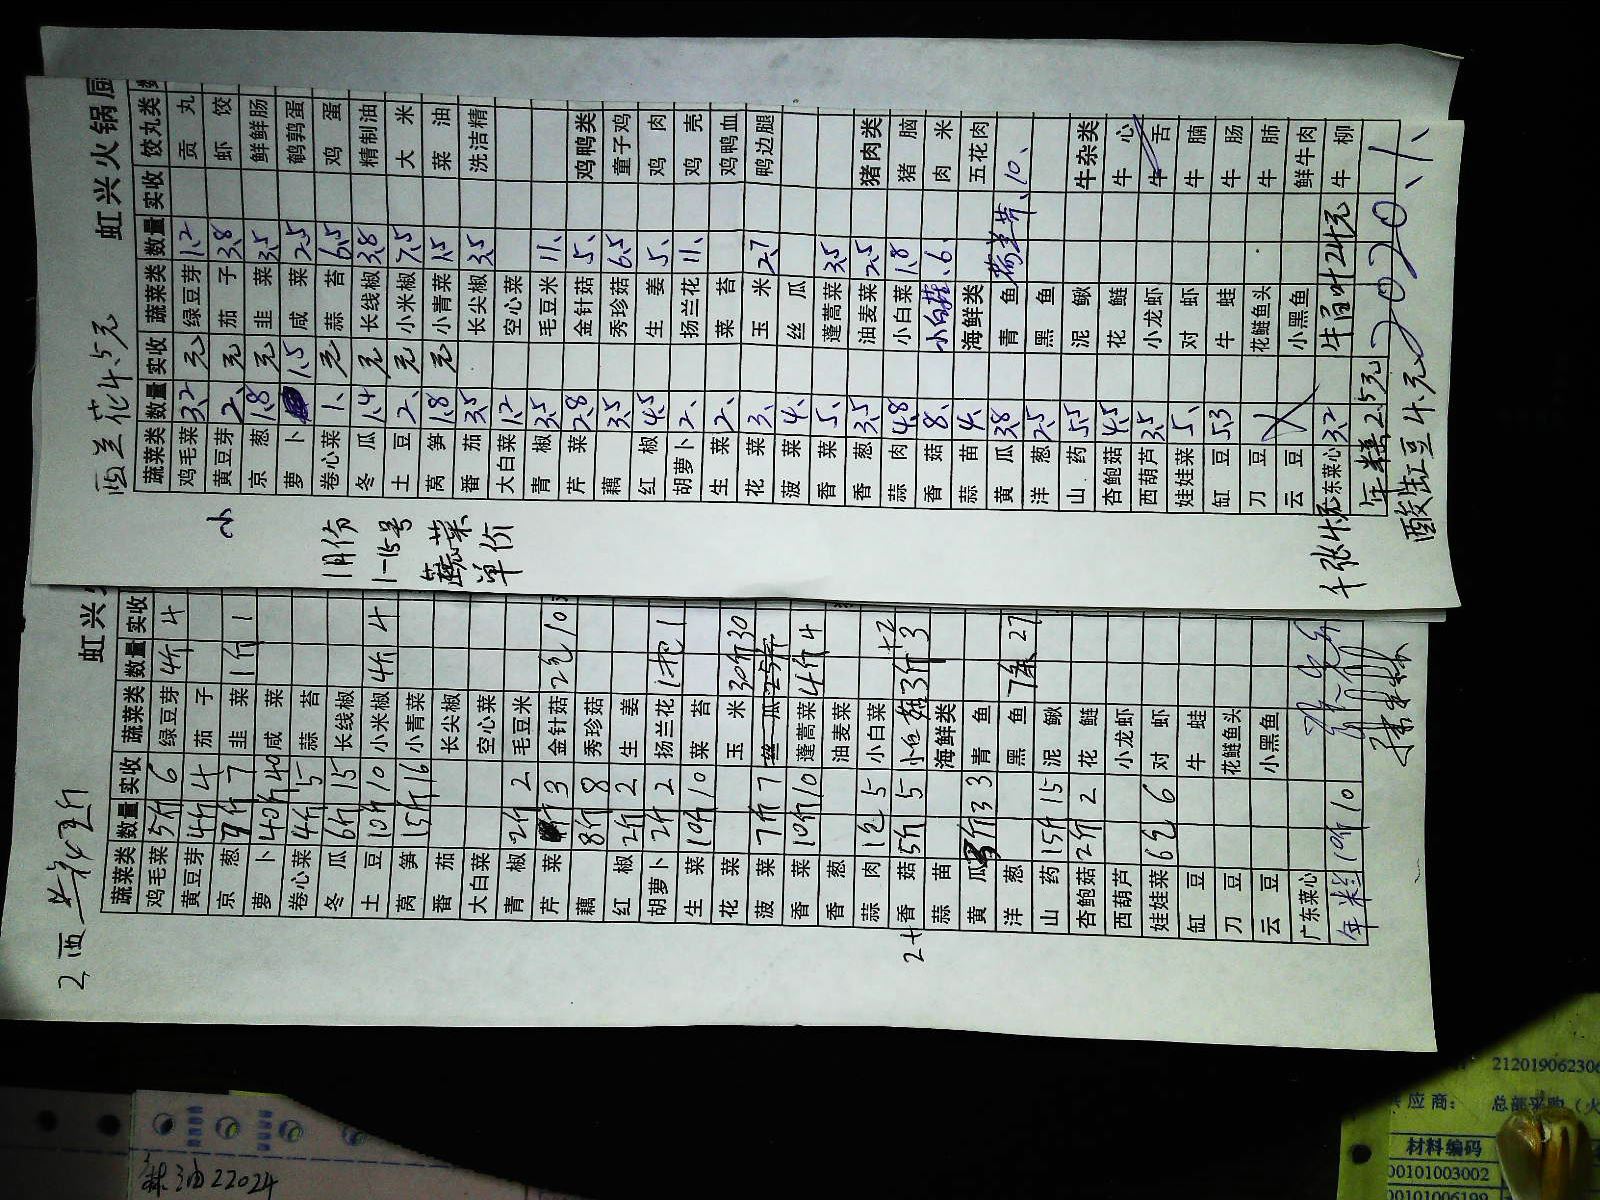 虹兴火锅店
西兰花4.5元
蔬菜类 数量 实收 蔬菜类 数量 实收 饺丸类
鸡毛菜 3.2 元 绿豆芽 1.2 贡丸
黄豆芽 2、 元 茄子 3.8 虾饺
京葱 1.8 元 韭菜 3.5 鲜鲜肠
萝卜 1.5 咸菜 2.5 鹌鹑蛋
卷心菜 1、 元 蒜苔 6.5 鸡蛋
冬瓜 1.4 元 长线椒 3.8 精制油
土豆 2、 元 小米椒 7.5 大米
莴笋 1.8 元 小青菜 1.5 菜油
番茄 3.5 长尖椒 3.5 洗洁精
大白菜 1.2 空心菜
青椒 3.5 毛豆米 11、
芹菜 2.8 金针菇 5、 鸡鸭类
藕 3.5 秀珍菇 6.5 童子鸡
红椒 4.5 生姜 5、 鸡肉
胡萝卜 2、 扬兰花 11、 鸡壳
生菜 2、 菜苔 鸡鸭血
花菜 3、 玉米 2.7 鸭边腿
菠菜 4、 丝瓜
香菜 5、 蓬蒿菜 3.5
香葱 3.5 油麦菜 2.5 猪肉类
蒜肉 4.8 小白菜 1.8 猪脑
香菇 8、 小白菇 6、 肉米
蒜苗 4、 海鲜类 五花肉
黄瓜 3.8 青鱼 10、
洋葱 2.5 黑鱼
山药 5.5 泥鳅 牛杂类
杏鲍菇 4.5 花鲢 牛心
西葫芦 3.5 小龙虾 牛舌
娃娃菜 5、 对虾 牛腩
缸豆 5.3 牛蛙 牛肠
刀豆 花鲢鱼头 牛肺
云豆 小黑鱼 鲜牛肉
广东菜心 3.2 牛百叶24元 牛柳
年糕2.5元
千张4元
酸缸豆4元
2020、1、
1月份
1-15号
蔬菜
单价
虹兴火
蔬菜类 数量 实收 蔬菜类 数量 实收
鸡毛菜 5斤 6 绿豆芽 4斤 4
黄豆芽 4斤 4 茄子
京葱 7斤 7 韭菜 1斤 1
萝卜 40斤 40 咸菜
卷心菜 4斤 5 蒜苔
冬瓜 6斤 15 长线椒
土豆 10斤 10 小米椒 4斤 4
莴笋 15斤 16 小青菜
番茄 长尖椒
大白菜 空心菜
青椒 2斤 2 毛豆米
芹菜 3 金针菇 2包 10
藕 8斤 8 秀珍菇
红椒 2斤 2 生姜
胡萝卜 2斤 2 扬兰花 1把 1
生菜 10斤 10 菜苔
花菜 玉米 30斤 30
菠菜 7斤 7 丝瓜 25斤
香菜 10斤 10 蓬蒿菜 4斤 4
香葱 油麦菜
蒜肉 1包 5 小白菜
香菇 5斤 5 小白菇 3斤 3
蒜苗 海鲜类
黄瓜 3斤 3 青鱼
洋葱 黑鱼 7条 27
山药 15斤 15 泥鳅
杏鲍菇 2斤 2 花鲢
西葫芦 小龙虾
娃娃菜 6包 6 对虾
缸豆 牛蛙
刀豆 花鲢鱼头
云豆 小黑鱼
广东菜心
年糕 10斤 10
22024
212019062306
供应商： 总部采购（火
材料编码
00101003002
00101006199